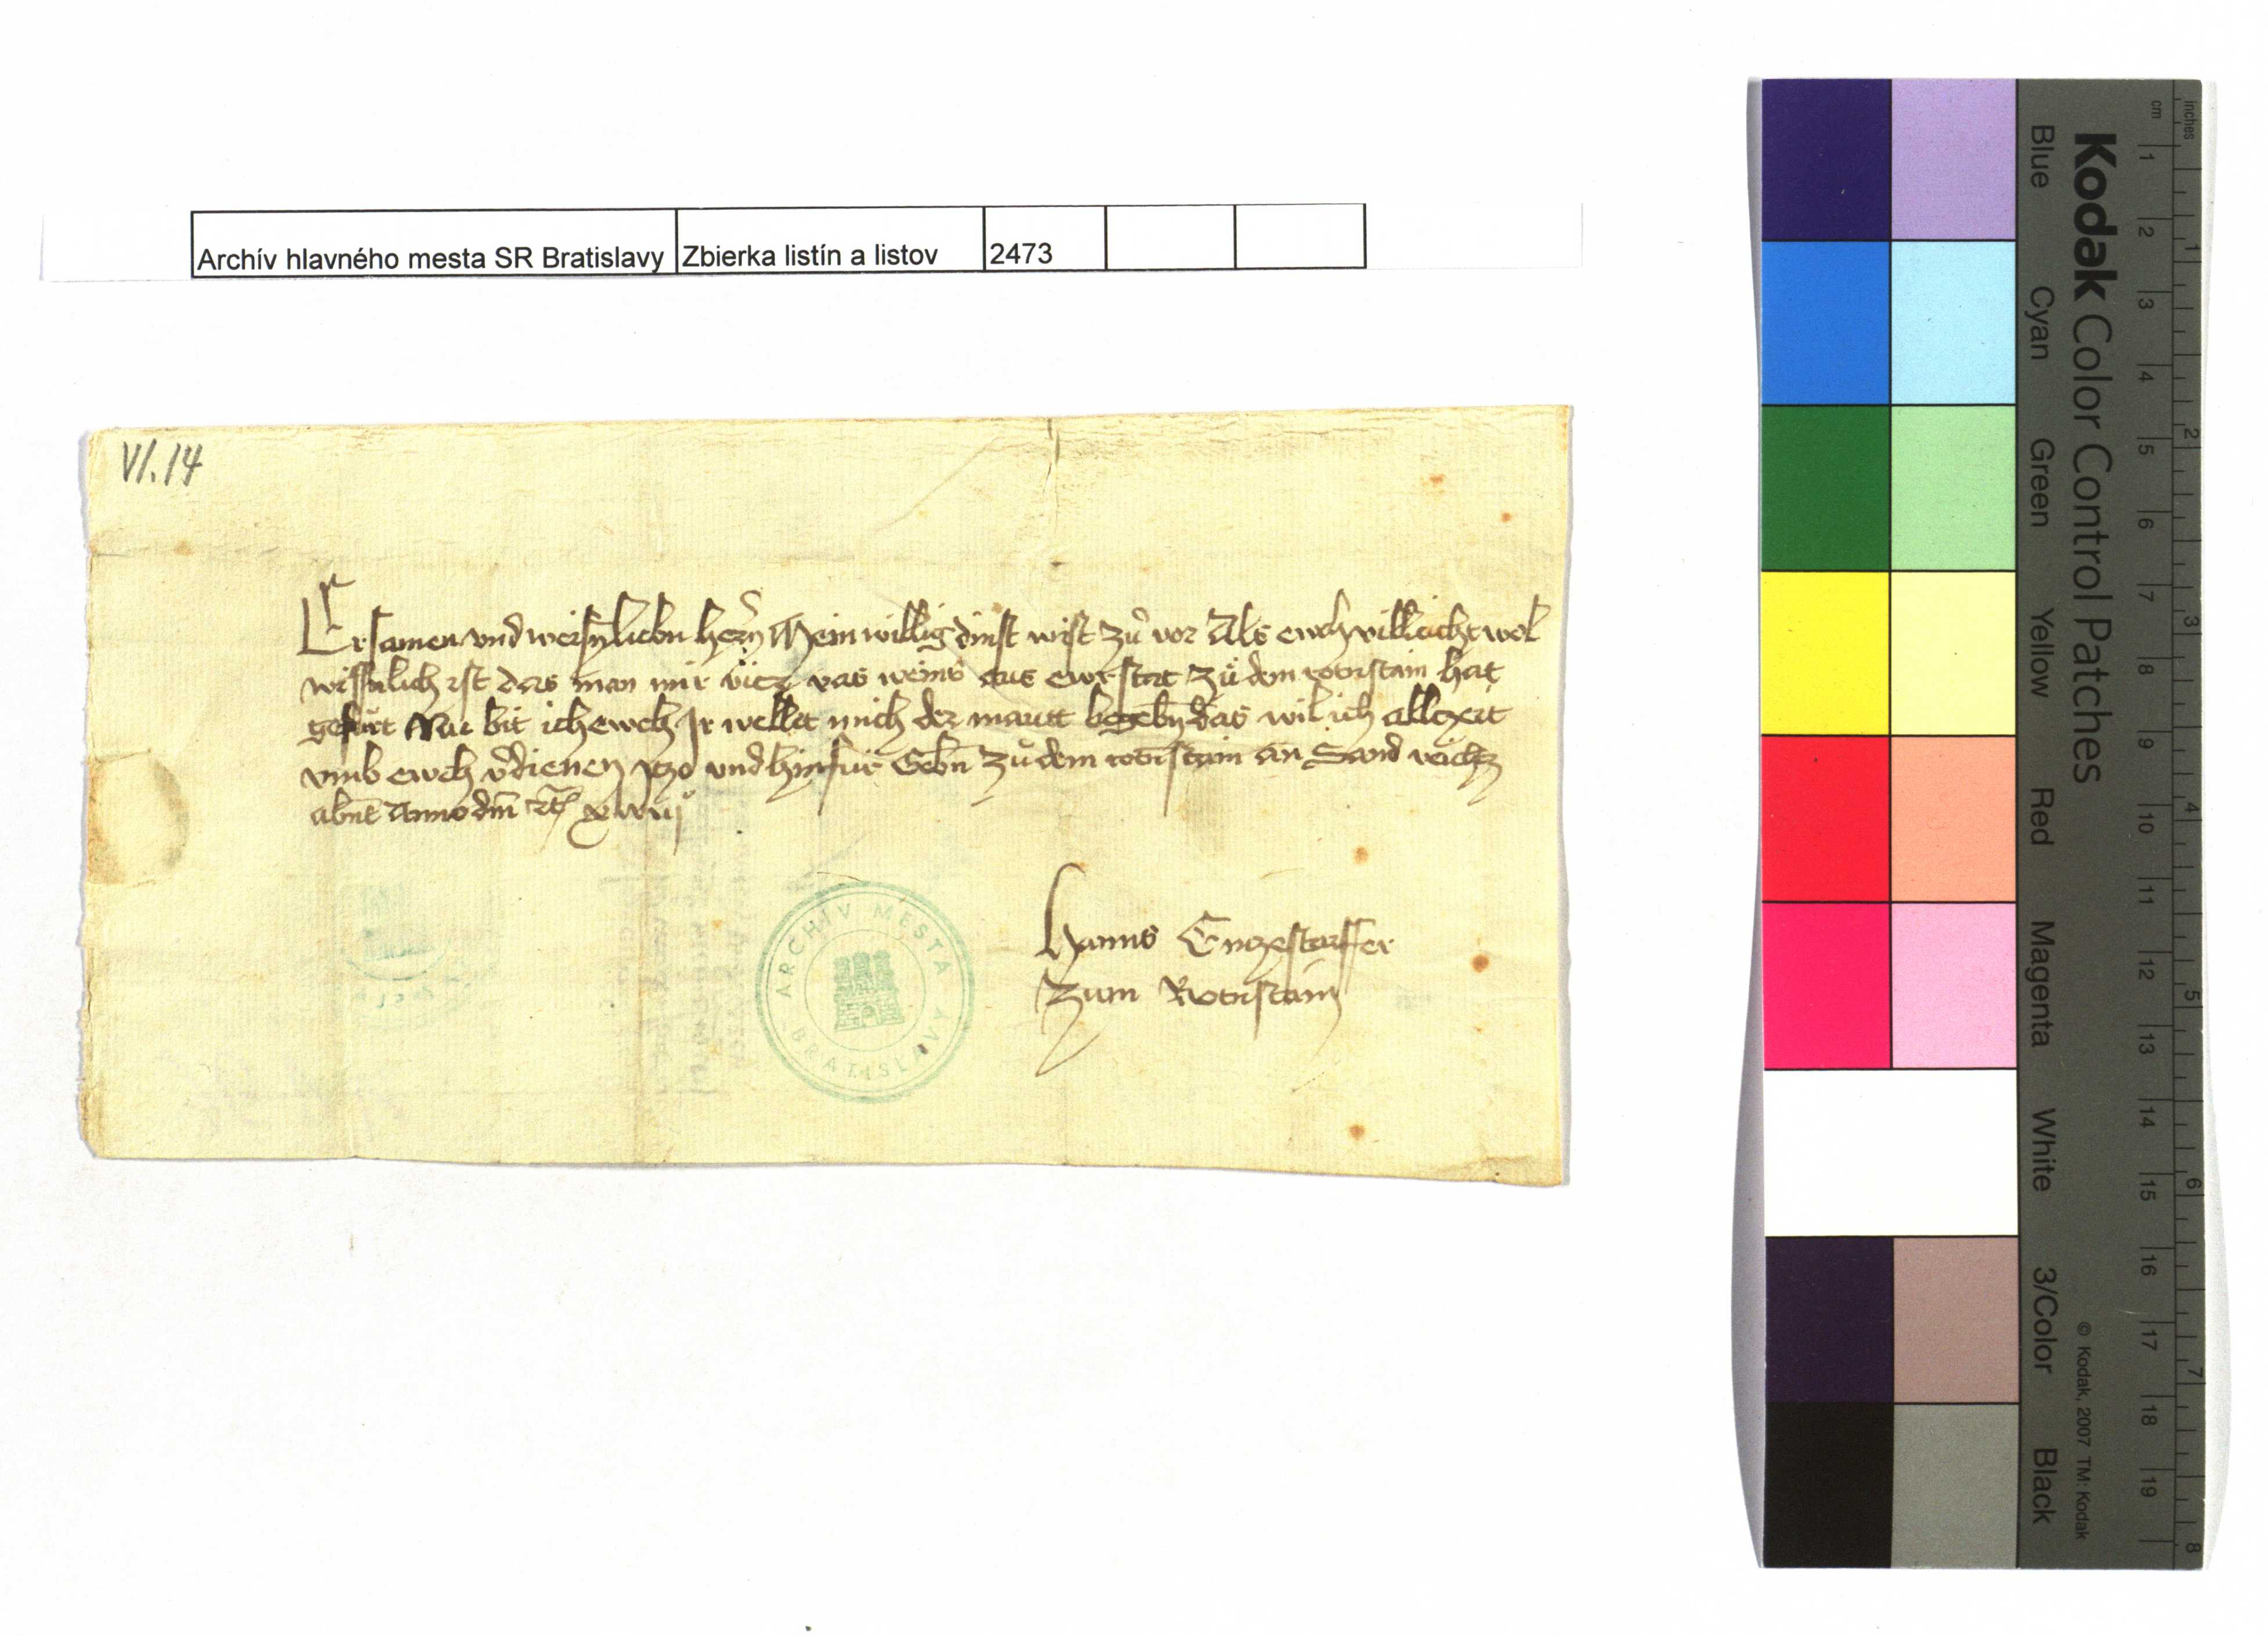 Archív hlavného mesta SR Bratislavy Zbierka listín a listov 2473
VI. 14
Ersamen und weisn liebn hern Mein willig dinst wist zů vor Als ewch villeicht wol
wissnlich ist das man mir vas weins aus ewr stat zů dem rotnstain hat
gefurt Nu bit ich ewch Ir wellet mich der mautt begebn das wil ich allczeit
umb ewch vdienen yczo und hinfur Gebn zů dem rotnstain an Sand
abnt Anno dm
Hanns Enczestorffer
zum Rotnstain
ARCHÍV MESTA
BRATISLAVY
Kodak Color Control Patches
Blue Cyan Green Yellow Red Magenta White 3/Color Black
© Kodak, 2007 TM: Kodak
cm 1 2 3 4 5 6 7 8 9 10 11 12 13 14 15 16 17 18 19
inches 1 2 3 4 5 6 7 8